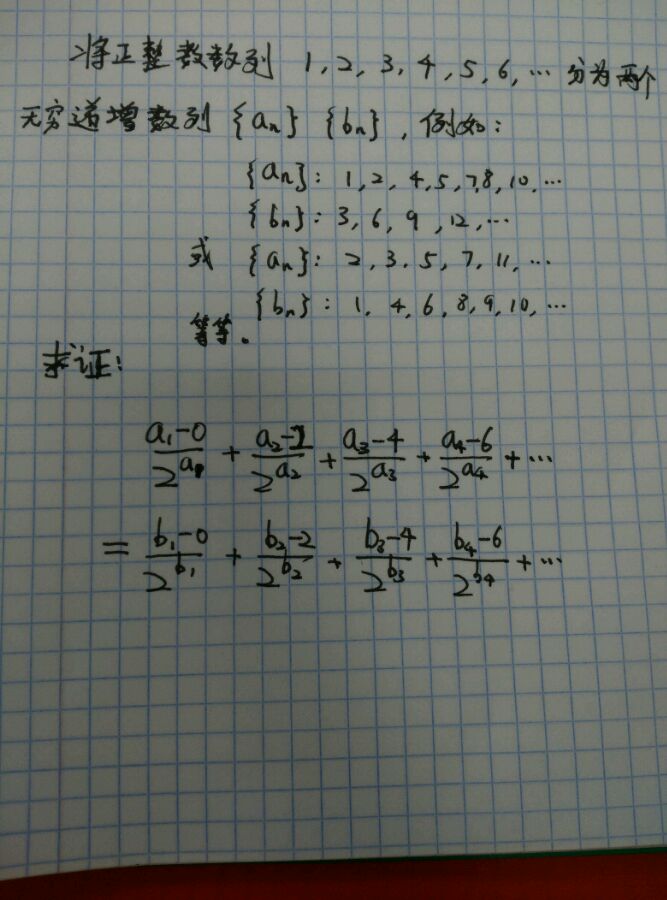 将正整数数列 1, 2, 3, 4, 5, 6, … 分为两个
无穷递增数列 {aₙ} {bₙ}, 例如:
{aₙ}: 1, 2, 4, 5, 7, 8, 10, …
{bₙ}: 3, 6, 9, 12, …
或 {aₙ}: 2, 3, 5, 7, 11, …
{bₙ}: 1, 4, 6, 8, 9, 10, …
等等。
求证:
(a₁-0)/2^(a₁) + (a₂-2)/2^(a₂) + (a₃-4)/2^(a₃) + (a₄-6)/2^(a₄) + …
= (b₁-0)/2^(b₁) + (b₂-2)/2^(b₂) + (b₃-4)/2^(b₃) + (b₄-6)/2^(b₄) + …